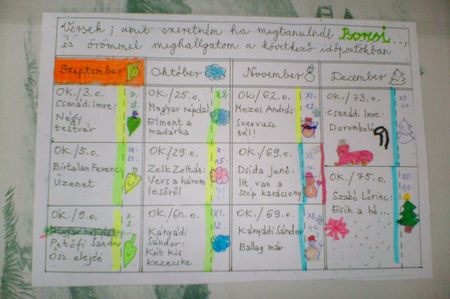 Versek, amit szeretném ha megtanulnál Borsi...,
és örömmel meghallgatom a következő időpontokban
Szeptember Október November December
OK./3.o.
Csanádi Imre:
Négy
testvér
OK./25.o.
Magyar népdal
Elment a
madárka
OK./62.o.
Mezei András:
Szervusz
tél!
OK./73.o.
Csanádi
Imre:
Doromboló
OK./5.o.
Birtalan Ferenc:
Üzenet
OK./29.o.
Zelk Zoltán:
Vers a három
OK./69.o.
Dsida Jenő:
Itt van a
szép karácsony
OK./75.o.
Szabó Lőrinc:
Esik a hó...
OK./9.o.
Petőfi Sándor
Ősz elején
OK./60.o.
Kányádi
Sándor:
Két kis
kezecske
OK./69.o.
Kányádi Sándor
Ballag már